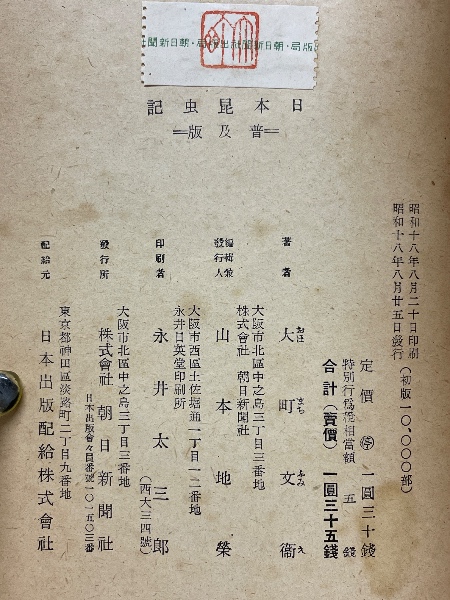 版局・朝日新聞社出版局・朝日新聞社
日本昆虫記
＝普及版＝
昭和十八年八月二十日印刷
昭和十八年八月廿五日發行
（初版一〇、〇〇〇部）
定價 停 一圓三十錢
特別行爲税相當額 五錢
合計（賣價） 一圓三十五錢
著者 大町文衞
おほ まち ふみ え
大阪市北區中之島三丁目三番地
株式會社 朝日新聞社
編輯兼發行人 山本地榮
大阪市西區土佐堀通一丁目一二番地
永井日英堂印刷所
印刷者 永井太三郎
（西大三四號）
大阪市北區中之島三丁目三番地
發行所 株式會社 朝日新聞社
日本出版會々員番號一〇一五〇三番
東京都神田區淡路町二丁目九番地
配給元 日本出版配給株式會社